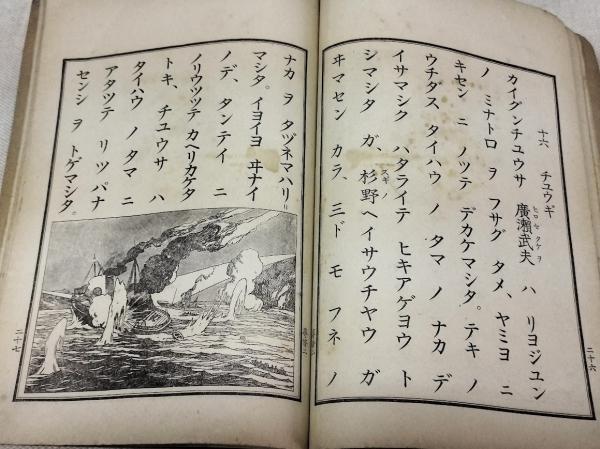 十六 チユウギ
カイグンチユウサ 廣瀬武夫 ハ リヨジユン
ヒロセ タケヲ
ノ ミナトロ ヲ フサグ タメ、ヤミヨ ニ
キセン ニ ノツテ デカケマシタ。テキ ノ
ウチダス タイハウ ノ タマ ノ ナカ デ
イサマシク ハタライテ ヒキアゲヨウ ト
シマシタ ガ、杉野ヘイサウチヤウ ガ
スギノ
ヰマセン カラ、三ド モ フネ ノ
二十六
ナカ ヲ タヅネマハリ
マシタ。イヨイヨ ヰナイ
ノデ、タンテイ ニ
ノリウツツテ カヘリカケタ
トキ、チユウサ ハ
タイハウ ノ タマ ニ
アタツテ リツパナ
センシ ヲ トゲマシタ。
二十七